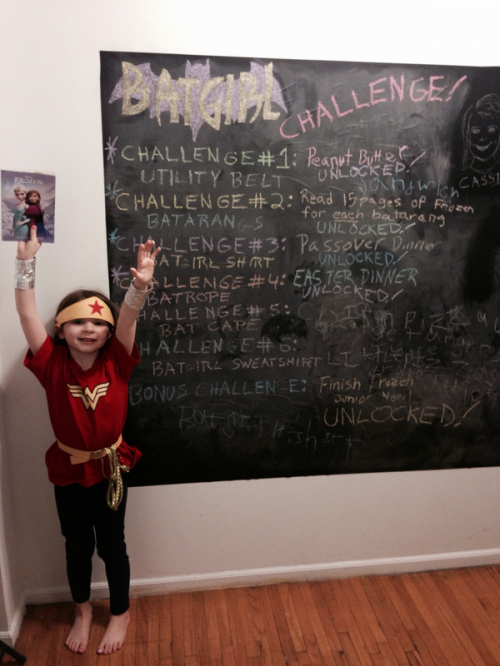 BATGIRL CHALLENGE!
CHALLENGE #1: Peanut Butter
UTILITY BELT UNLOCKED!
CASSI
CHALLENGE #2: Read 15 pages of Frozen
for each batarang
BATARANGS UNLOCKED!
CHALLENGE #3: Passover Dinner
BATGIRL SHIRT UNLOCKED!
CHALLENGE #4: EASTER DINNER
BATROPE UNLOCKED!
CHALLENGE #5:
BAT CAPE
CHALLENGE #6:
BATGIRL SWEATSHIRT
BONUS CHALLENGE: Finish Frozen
Junior Novel
UNLOCKED!
FROZEN